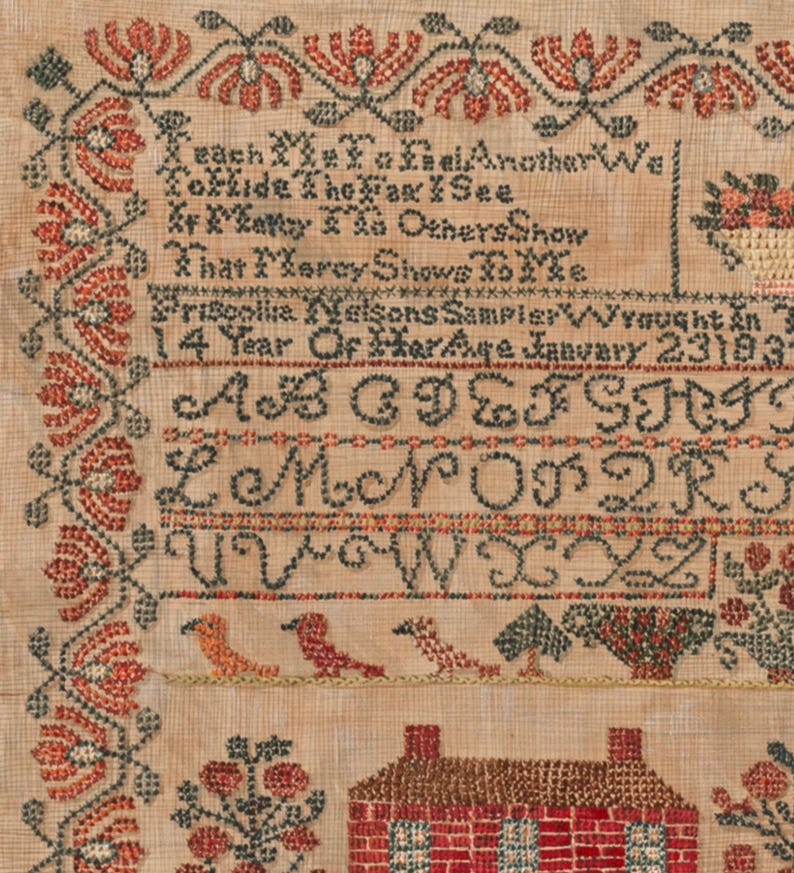 Teach Me To Feel Another Wo
To Hide The Fax I See
If Matty I To Others Show
That Mercy Shows To Me
Priscilla Nelsons Sampler Wrought in
14 Year Of Her Age January 23 183
A B C D E F G H I
L M N O P Q R
U V W X Y Z